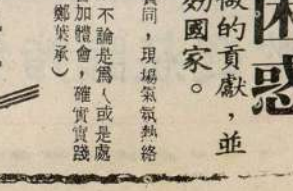 困惑
做的貢獻，並
効國家。
同，現場氣氛熱絡
不論是為人或是處
加體會，確實實踐
鄭葉承）